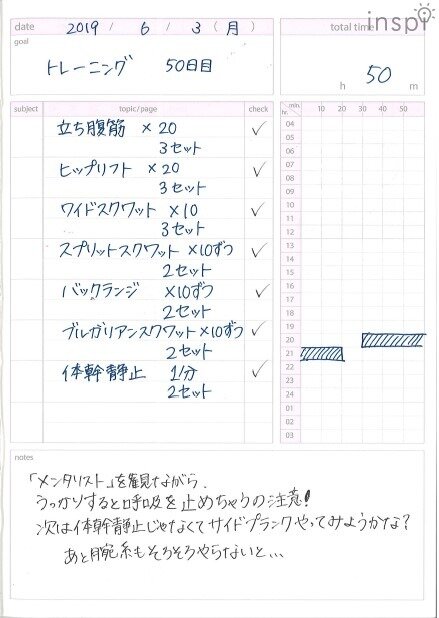 inspi
date 2019 / 6 / 3 (月)
total time
goal
トレーニング 50日目
50
h m
subject topic/page check
min. 10 20 30 40 50
hr.
立ち腹筋 × 20 ✓
3セット
ヒップリフト × 20 ✓
3セット
ワイドスクワット ×10 ✓
3セット
スプリットスクワット ×10ずつ ✓
2セット
バックランジ ×10ずつ ✓
2セット
ブルガリアンスクワット×10ずつ ✓
2セット
体幹静止 1分 ✓
2セット
04
05
06
07
08
09
10
11
12
13
14
15
16
17
18
19
20
21
22
23
24
01
02
03
notes
「メンタリスト」を観ながら.
うっかりすると呼吸を止めちゃうの注意!
次は体幹静止じゃなくてサイドプランクやってみようかな?
あと腕系もそろそろやらないと...